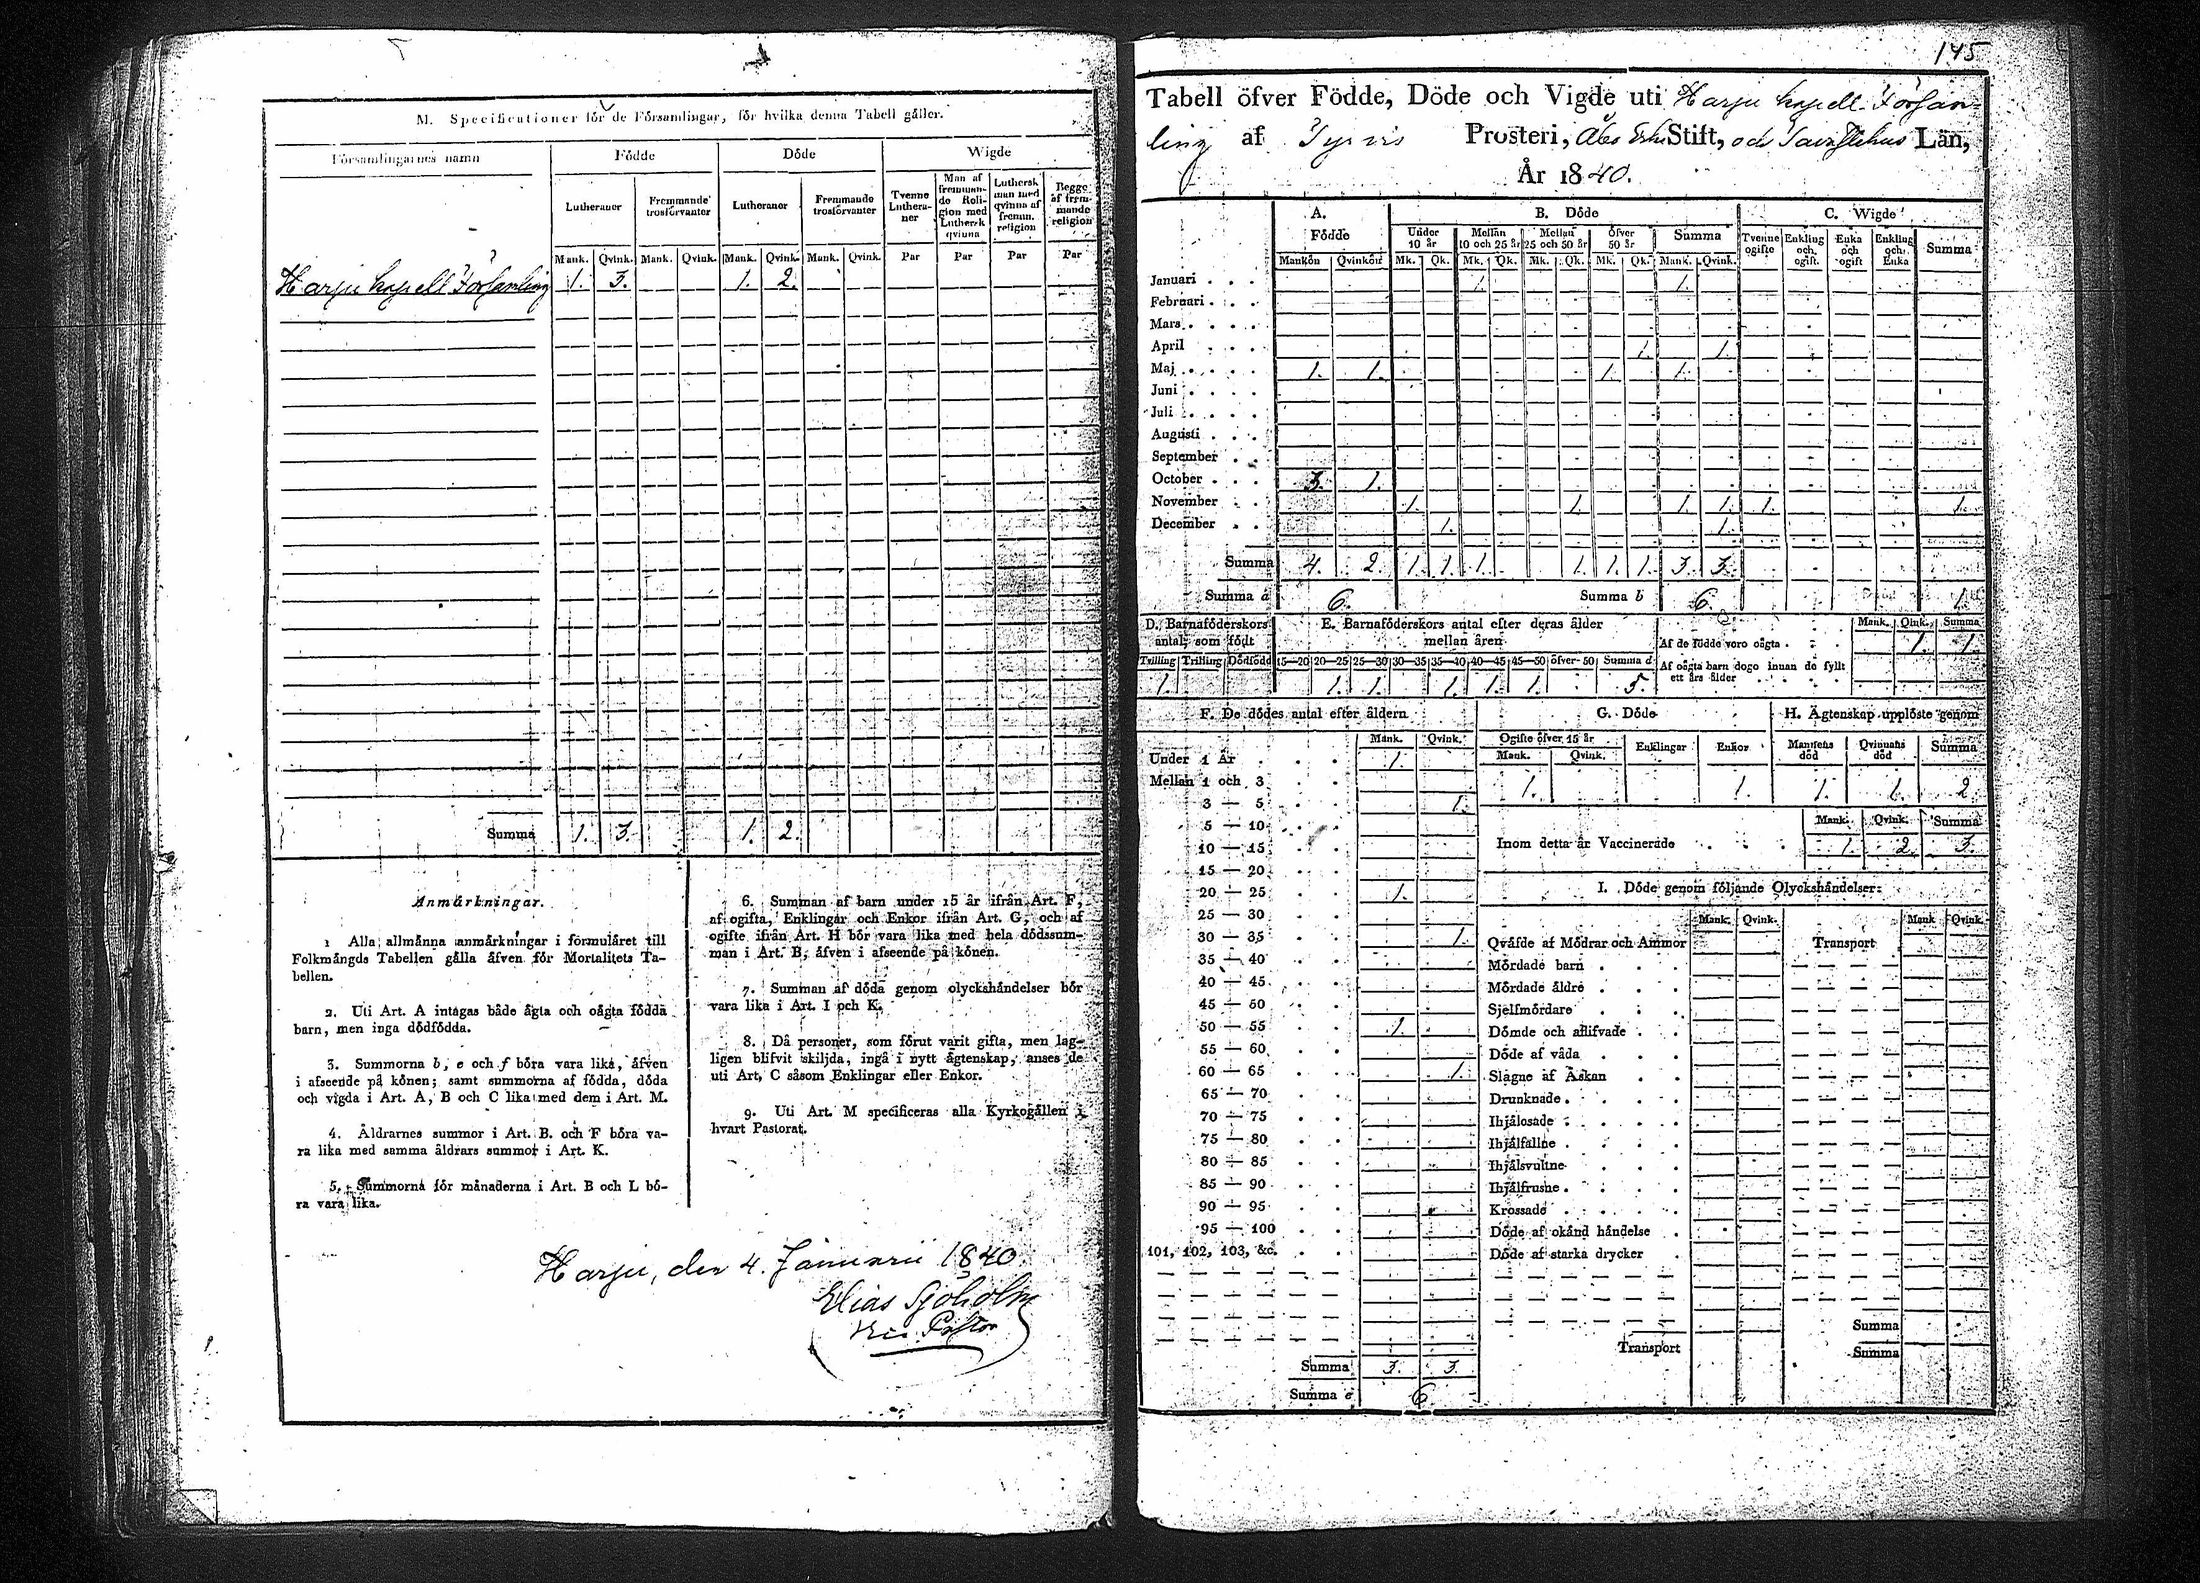 M. Specificationer för de Församlingar, för hvilka denna Tabell gäller.
Församlingarnes namn
Födde
Döde
Wigde
Lutheraner
Fremmande trosförvanter
Lutheraner
Fremmande trosförvanter
Tvenne Lutheraner
Man af fremmande Religion med Luthersk qvinna
Luthersk man med qvinna af fremm. religion
Begge af fremmande religion
Mank. Qvink. Mank. Qvink. Mank. Qvink. Mank. Qvink. Par Par Par Par
Harju kapell Församling 1. 3. 1. 2.
Summa 1. 3. 1. 2.
Anmärkningar.
1 Alla allmänna anmärkningar i formuläret till
Folkmängds Tabellen gälla äfven för Mortalitets Ta-
bellen.
2. Uti Art. A intagas både ägta och oägta födda
barn, men inga dödfödda.
3. Summorna b, e och f böra vara lika, äfven
i afseende på könen; samt summorna af födda, döda
och vigda i Art. A, B och C lika med dem i Art. M.
4. Åldrarnes summor i Art. B. och F böra va-
ra lika med samma åldrars summor i Art. K.
5. Summorna för månaderna i Art. B och L bö-
ra vara lika.
6. Summan af barn under 15 år ifrån Art. F,
af ogifta, Enklingar och Enkor ifrån Art. G, och af
ogifte ifrån Art. H bör vara lika med hela dödssum-
man i Art. B, äfven i afseende på könen.
7. Summan af döda genom olyckshändelser bör
vara lika i Art. I och K.
8. Då personer, som förut varit gifta, men lag-
ligen blifvit skiljda, ingå i nytt ägtenskap, anses de
uti Art. C såsom Enklingar eller Enkor.
9. Uti Art. M specificeras alla Kyrkogällen i
hvart Pastorat.
Harju, den 4. Januarii 1840.
Elias Sjöholm
Vice Pastor
145
Tabell öfver Födde, Döde och Vigde uti Harju kapell Försam-
ling af Tyrvis Prosteri, Åbo Erke Stift, och Tavastehus Län,
År 1840.
A. Födde
B. Döde
C. Wigde
Under 10 år
Mellan 10 och 25 år
Mellan 25 och 50 år
Öfver 50 år
Summa
Tvenne ogifte
Enkling och ogift.
Enka och ogift
Enkling och Enka
Summa
Mankön Qvinkön Mk. Qk. Mk. Qk. Mk. Qk. Mk. Qk. Mank. Qvink.
Januari 1. 1.
Februari
Mars
April 1. 1.
Maj 1. 1. 1. 1.
Juni
Juli
Augusti
September
October 3. 1.
November 1. 1. 1. 1. 1. 1.
December 1. 1.
Summa 4. 2. 1. 1. 1. 1. 1. 1. 3. 3.
Summa a 6. Summa b 6. 1.
D. Barnaföderskors antal, som födt
E. Barnaföderskors antal efter deras ålder mellan åren
Mank. Qink. Summa
Af de födde voro oägta 1. 1.
Af oägta barn dogo innan de fyllt
ett års ålder
Tvilling Trilling Dödfödd 15—20 20—25 25—30 30—35 35—40 40—45 45—50 öfver 50 Summa d
1. 1. 1. 1. 1. 1. 5.
F. De dödes antal efter åldern
Mank. Qvink.
Under 1 År 1.
Mellan 1 och 3
3 — 5 1.
5 — 10
10 — 15
15 — 20
20 — 25 1.
25 — 30
30 — 35 1.
35 — 40
40 — 45
45 — 50
50 — 55 1.
55 — 60
60 — 65 1.
65 — 70
70 — 75
75 — 80
80 — 85
85 — 90
90 — 95
95 — 100
101, 102, 103, &c.
Summa 3. 3.
Summa e 6
G. Döde
Ogifte öfver 15 år
Mank. Qvink. Enklingar Enkor
1. 1.
H. Ägtenskap upplöste genom
Mannens död Qvinnans död Summa
1. 1. 2.
Mank. Qvink. Summa
Inom detta år Vaccinerade 1. 2. 3.
I. Döde genom följande Olyckshändelser:
Mank. Qvink. Mank Qvink.
Qväfde af Mödrar och Ammor
Mördade barn
Mördade äldre
Sjelfmördare
Dömde och aflifvade
Döde af våda
Slagne af Åskan
Drunknade
Ihjälosade
Ihjälfallne
Ihjälsvultne
Ihjälfrusne
Krossade
Döde af okänd händelse
Döde af starka drycker
Transport
Transport
Summa
Summa